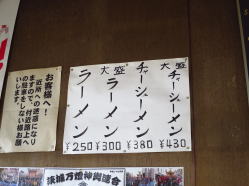 お客様へ!
近所への迷惑になり
ますので、付近路上へ
の駐車をしない様お願
いします。
大盛
チャーシューメン
¥430
チャーシューメン
¥380
大盛
ラーメン
¥300
ラーメン
¥250